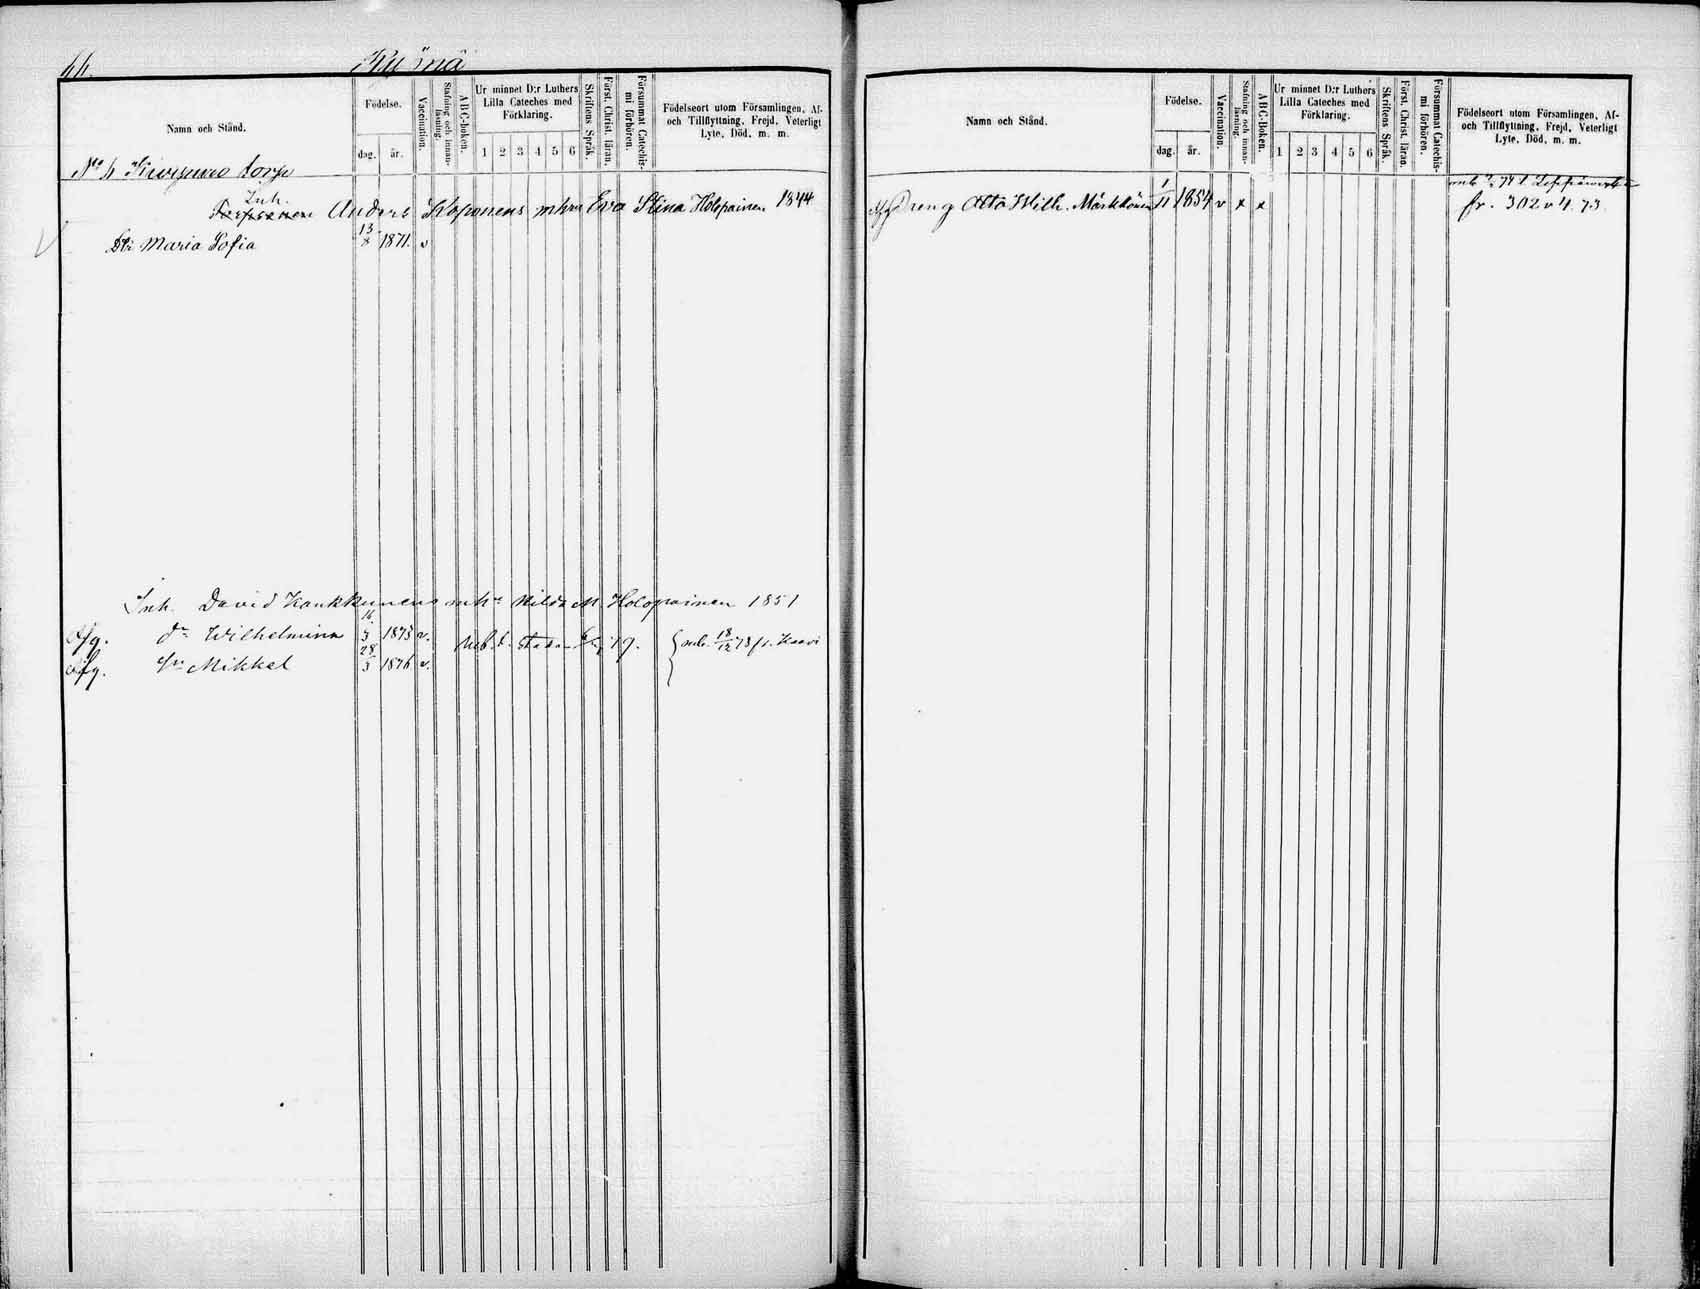 66.
Namn och Stånd.
Födelse.
dag.
år.
Vaccination.
Stafning och innanläsning.
ABC-boken.
Ur minnet D:r Luthers Lilla Cateches med Förklaring.
1 2 3 4 5 6
Skriftens Språk.
Först. Christ. läran.
Försummat Catechismi förhören.
Födelseort utom Församlingen, Af- och Tillflyttning, Frejd, Veterligt Lyte, Död, m. m.
torp
Inh.
Anders Koponens Eva Stina Holopainen 1844
Maria Sofia 13/8 1871. v
Inh. David Hilda M. Holopainen 1851
Afg. dr Wilhelmina 16/3 1873 v.
Afg. Sn Mikkel 28/3 1876 v.
18/12 78 fr. Kaavi
Namn och Stånd.
Födelse.
dag.
år.
Vaccination.
Stafning och innanläsning.
ABC-boken.
Ur minnet D:r Luthers Lilla Cateches med Förklaring.
1 2 3 4 5 6
Skriftens Språk.
Först. Christ. läran.
Försummat Catechismi förhören.
Födelseort utom Församlingen, Af- och Tillflyttning, Frejd, Veterligt Lyte, Död, m. m.
dreng Otto Wilh. 1/11 1854 v x x
fr. 302 v 4. 73.